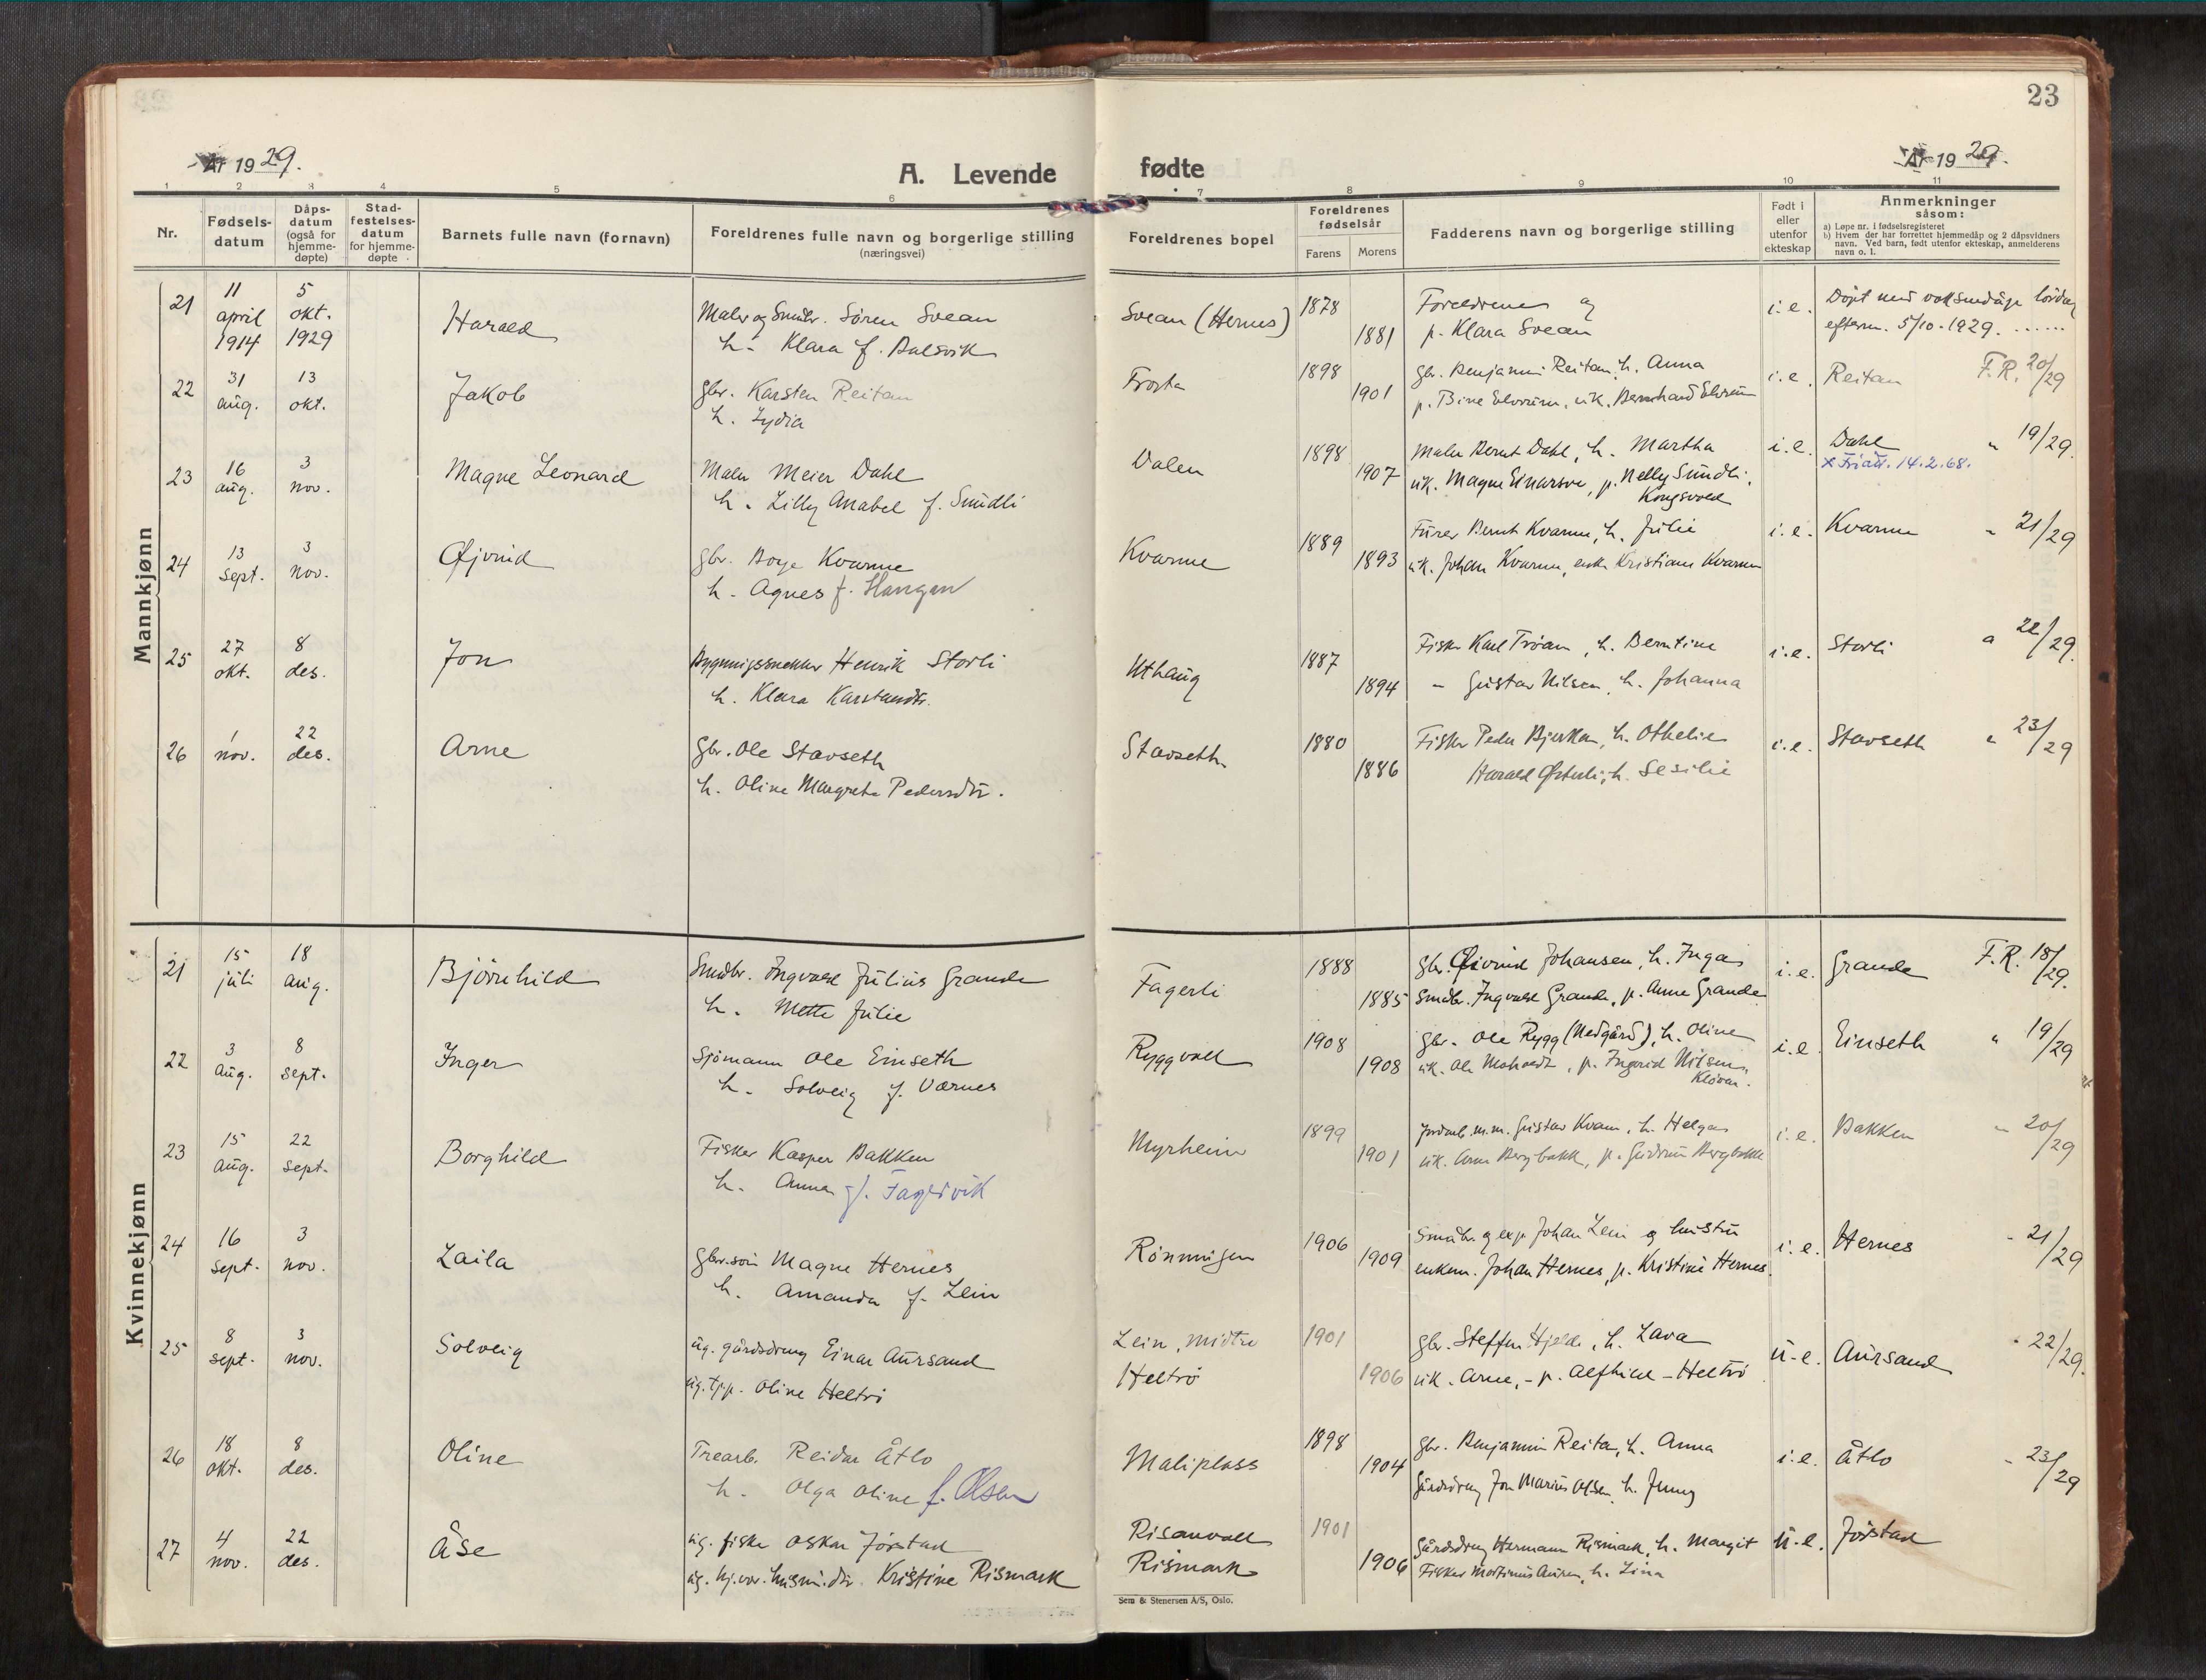 23
År 1929.
A. Levende fødte
År 1929.
1 2 3 4 5 6 7 8 9 10 11
Nr.
Fødsels-datum
Dåps-datum (også for hjemme-døpte)
Stad-festelses-datum for hjemme-døpte
Barnets fulle navn (fornavn)
Foreldrenes fulle navn og borgerlige stilling
(næringsvei)
Foreldrenes bopel
Foreldrenes fødselsår
Farens Morens
Fadderens navn og borgerlige stilling
Født i eller utenfor ekteskap
Anmerkninger
såsom:
a) Løpe nr. i fødselsregisteret
b) Hvem der har forrettet hjemmedåp og 2 dåpsvidners
navn. Ved barn, født utenfor ekteskap, anmelderens
navn o. l.
Mannkjønn
21 11 april 1914 5 okt. 1929 Harald Maler og Småbr. Søren Svean Svean (Hernes) 1878 Foreldrene og i.e. Døpt med voksendåp lørdag
h. Klara f. Balsvik 1881 p. Klara Svean efterm. 5/10-1929.
22 31 aug. 13 okt. Jakob Gbr. Karsten Reitan Frosta 1898 Gbr. Benjamin Reitan, h. Anna i.e. Reitan F.R. 20/29
h. Lydia 1901 p. Bine Elvrum, uk. Bernhard Elvrum
23 16 aug. 3 nov. Magne Leonard Maler Meier Dahl Dalen 1898 Maler Bernt Dahl, h. Martha i.e. Dahl " 19/29.
h. Lilly Anabel f. Sundli 1907 uk. Magne Einarsve, p. Nelly Sundli, x Friatt. 14.2.68.
Kongsvold
24 13 sept. 3 nov. Øjvind Gbr. Borge Kvarme Kvarme 1889 Furer Bernt Kvarme, h. Julie i.e. Kvarme " 21/29
h. Agnes f. Haugan 1893 uk. Johan Kvarme, enke Kristiane Kvarme
25 27 okt. 8 des. Jon Bygningssnekker Henrik Storli Uthaug 1887 Fisker Karl Trøan, h. Berntine i.e. Storli " 22/29.
h. Klara Karstensdtr. 1894 - Gustav Nilsen, h. Johanna
26 1 nov. 22 des. Arne Gbr. Ole Stavseth Stavseth 1880 Fisker Peder Bjerkan, h. Othelie i.e. Stavseth " 23/29
h. Oline Margrete Pedersdtr. 1886 Harald Østerli, h. Sesilie
Kvinnekjønn
21 15 juli 18 aug. Bjørnhild Småbr. Ingvald Julius Grande Fagerli 1888 Gbr. Øivind Johansen, h. Inga i.e. Grande F.R. 18/29.
h. Mette Julie 1885 Småbr. Ingvald Grande, p. Anne Grande
22 3 aug. 8 sept. Inger Sjømann Ole Einseth Ryggvoll 1908 Gbr. Ole Rygg (Nedgård), h. Oline i.e. Einseth " 19/29
h. Solveig f. Værnes 1908 uk. Ole Moholdt, p. Ingerid Nilsen,
Kløvan.
23 15 aug. 22 sept. Borghild Fisker Kasper Bakken Myrheim 1899 Jordarb. m.m. Gustav Kvam, h. Helga i.e. Bakken " 20/29
h. Anna f. Fagervik 1901 uk. Arne Bergbakk, p. Gudrun Bergbakk
24 16 sept. 3 nov. Laila Gbr.søn Magne Hernes Rönningen 1906 Småbr. og exp. Johan Lein og hustru i.e. Hernes " 21/29
h. Amanda f. Lein 1909 enkem. Johan Hernes, p. Kristine Hernes.
25 8 sept. 3 nov. Solveig ug. gårdsdreng Einar Aursand Lein, midtre 1901 Gbr. Steffen Hjelde, h. Lava u.e. Aursand " 22/29.
ug. tjp. Oline Heltrö Heltrö 1906 uk. Arne, - p. Alfhild - Heltrö
26 18 okt. 8 des. Oline Trearb. Reidar Åtlo Maliplass 1898 Gbr. Benjamin Reita, h. Anna i.e. Åtlo " 23/29
h. Olga Oline f. Olsen 1904 Gårdsdreng Jon Marius Olsen, h. Jenny
27 4 nov. 22 des. Åse ug. fisker Oskar Jörstad Risanvoll 1901 Gårdsdreng Hermann Rismark, h. Margit u.e. Jörstad
ug. hj.vær. husm.dtr. Kristine Rismark Rismark 1906 Fisker Martinus Aunan, h. Lina
Sem & Stenersen A/S, Oslo.